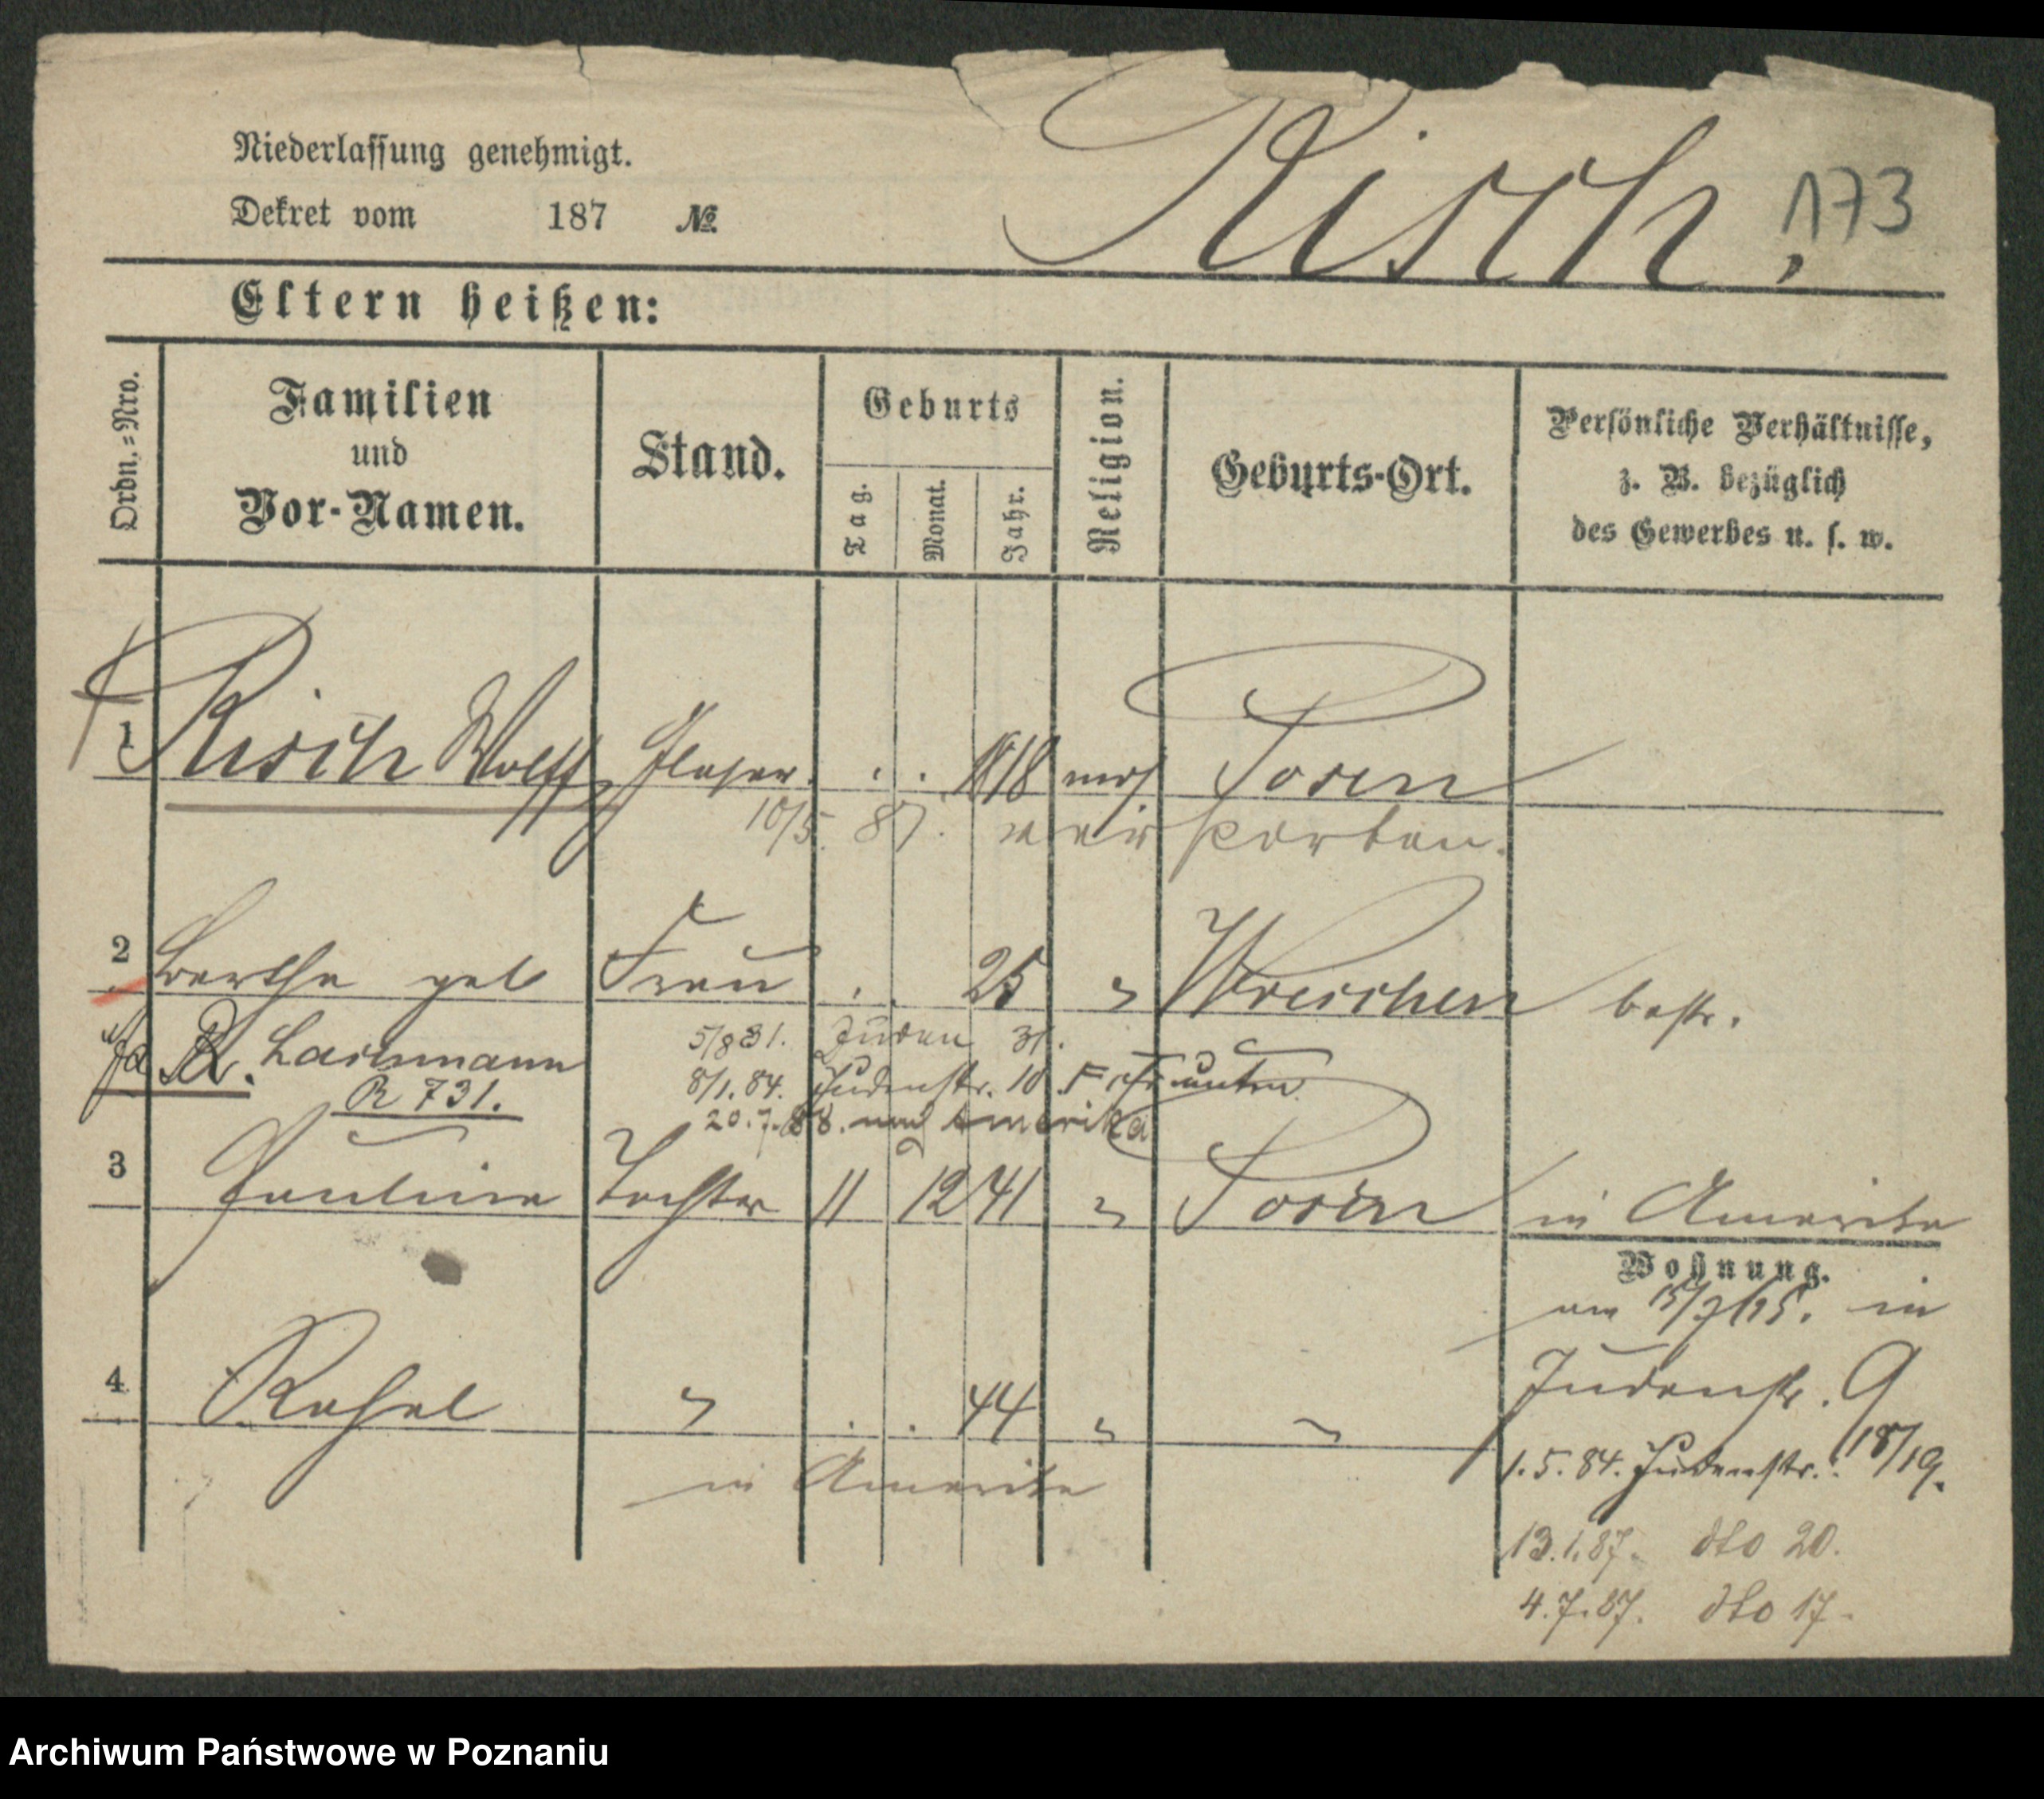 Niederlassung genehmigt.
Dekret vom 187 №
Risch.
173
Eltern heißen:
Ordn.=Nro.
Familien
und
Vor-Namen.
Stand.
Geburts
Tag.
Monat.
Jahr.
Religion.
Geburts-Ort.
Persönliche Verhältnisse,
z. B. bezüglich
des Gewerbes u. s. w.
1 Risch Wolff Glaser . . 1818 mos Posen
10/5. 87. verstorben.
2 Berthe geb Frau . . 25 " Wreschen bestr.
R. Lachmann 5/8 81. Juden 31.
R 731. 8/1. 84. Judenstr. 10 F
20.7.88. nach Amerika
3 Pauline Tochter 11 12 41 " Posen in Amerika
Wohnung.
am 15/7 75. in
4 Rahel " . . 44 " " Judenstr. 9
in Amerika
1.5.84. Judenstr. 18/19.
13.1.87. dto 20.
4.7.87. dto 17.
Archiwum Państwowe w Poznaniu